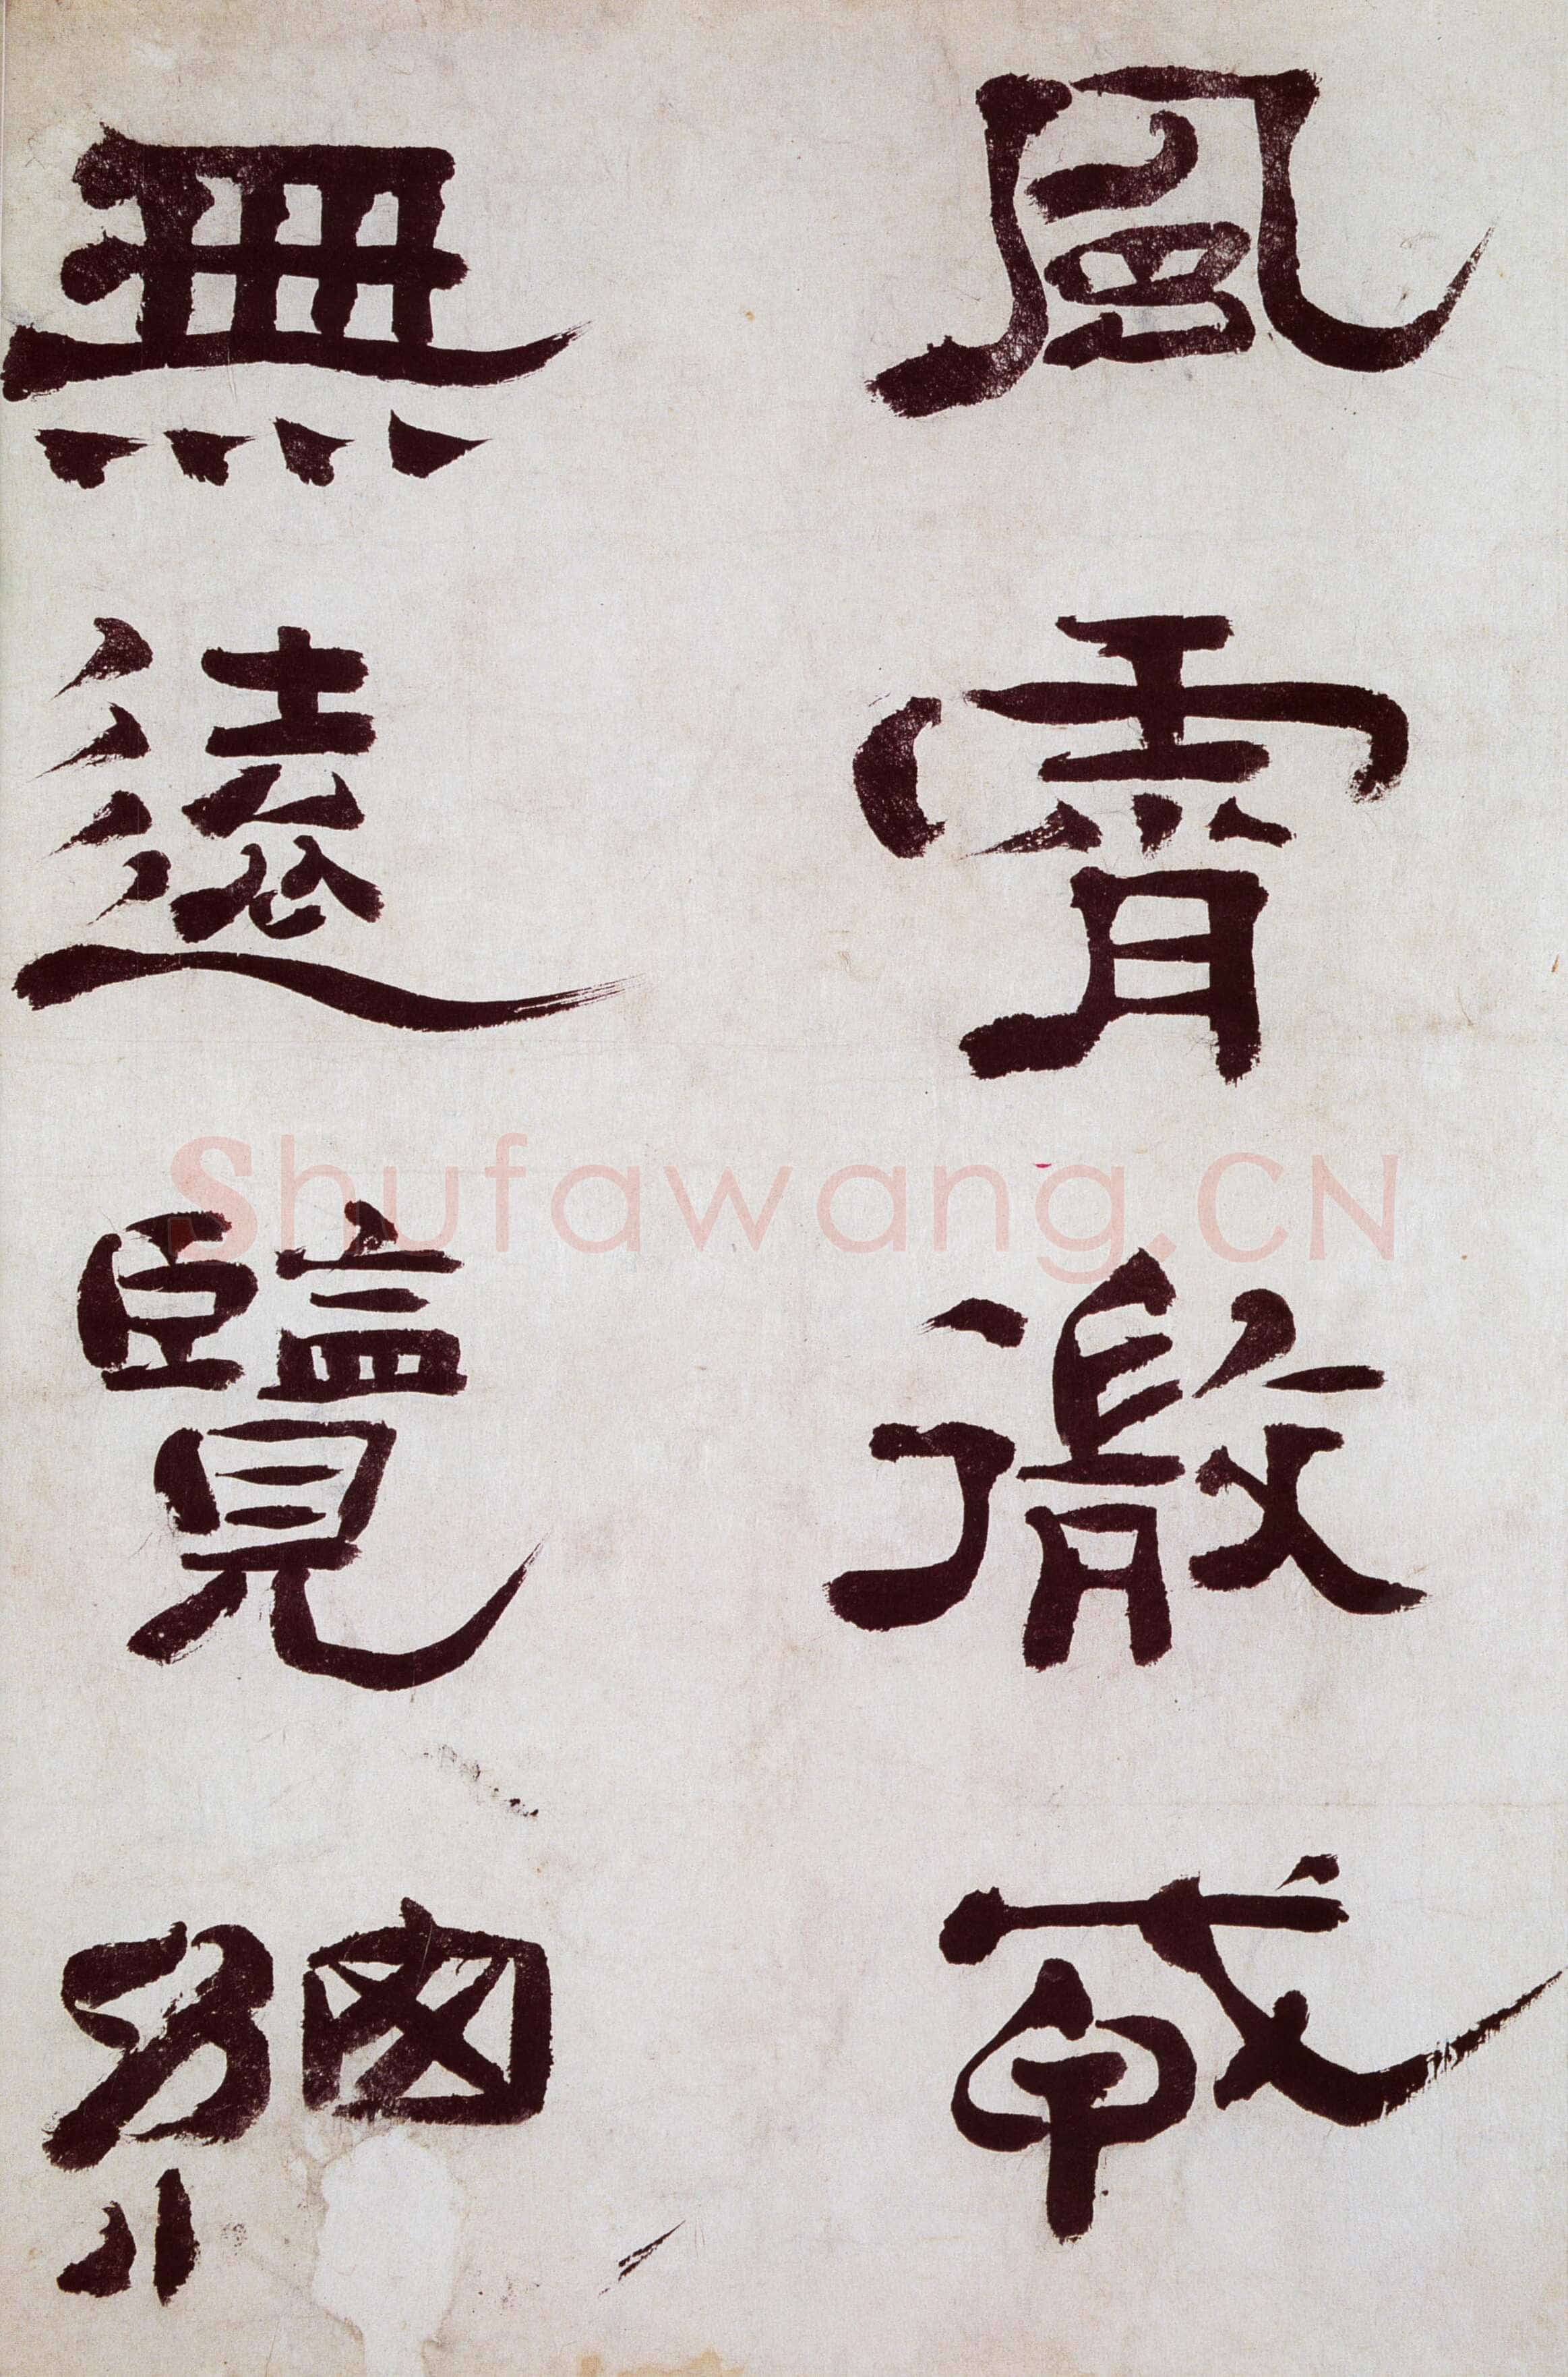 風霄徹
無遠覽細
Shufawang.CN